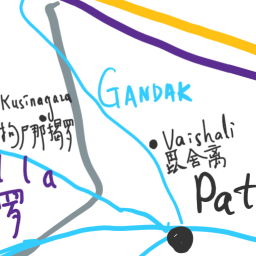 Kusinagara
拘尸那揭罗
GANDAK
Vaishali
毘舍离
lla
罗
Pat